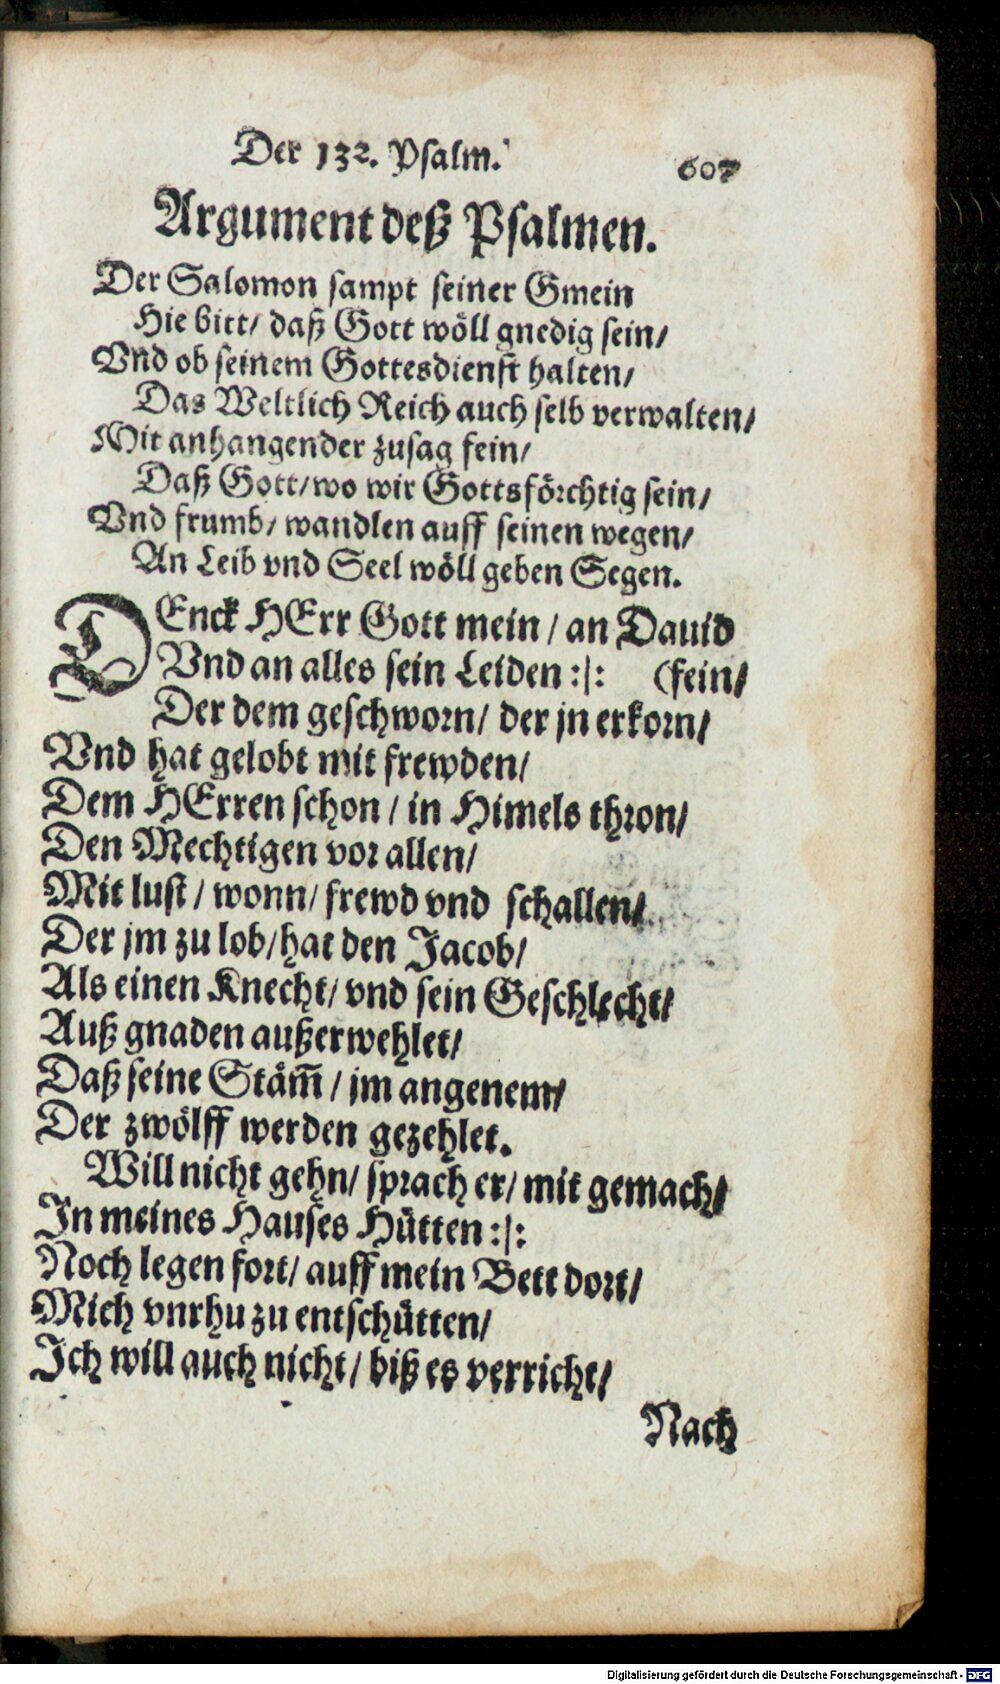 Der 132. Psalm. 607
Argument deß Psalmen.
Der Salomon sampt seiner Gmein
Hie bitt/ daß Gott wöll gnedig sein/
Vnd ob seinem Gottesdienst halten/
Das Weltlich Reich auch selb verwalten/
Mit anhangender zusag fein/
Daß Gott/ wo wir Gottsförchtig sein/
Vnd frumb/ wandlen auff seinen wegen/
An Leib vnd Seel wöll geben Segen.
DEnck HErr Gott mein / an Dauid
Vnd an alles sein Leiden :|: (fein/
Der dem geschworn/ der jn erkorn/
Vnd hat gelobt mit frewden/
Dem HErren schon / in Himels thron/
Den Mechtigen vor allen/
Mit lust / wonn/ frewd vnd schallen/
Der jm zu lob/ hat den Jacob/
Als einen Knecht/ vnd sein Geschlecht/
Auß gnaden außerwehlet/
Daß seine Stäm̅ / jm angenem/
Der zwölff werden gezehlet.
Will nicht gehn/ sprach er/ mit gemach/
In meines Hauses Hütten :|:
Noch legen fort/ auff mein Bett dort/
Mich vnrhu zu entschütten/
Ich will auch nicht/ biß es verricht/
Nach
Digitalisierung gefördert durch die Deutsche Forschungsgemeinschaft - DFG